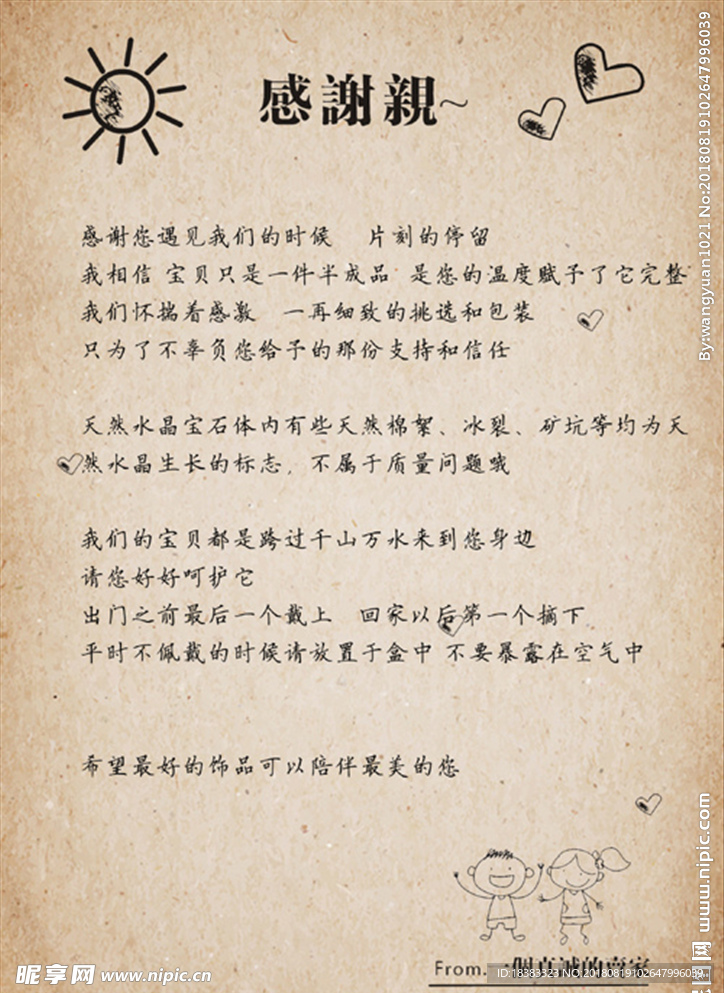 感謝親~
感谢您遇见我们的时候 片刻的停留
我相信 宝贝只是一件半成品 是您的温度赋予了它完整
我们怀揣着感激 一再细致的挑选和包装
只为了不辜负您给予的那份支持和信任
天然水晶宝石体内有些天然棉絮、冰裂、矿坑等均为天
然水晶生长的标志, 不属于质量问题哦
我们的宝贝都是跨过千山万水来到您身边
请您好好呵护它
出门之前最后一个戴上 回家以后第一个摘下
平时不佩戴的时候请放置于盒中 不要暴露在空气中
希望最好的饰品可以陪伴最美的您
From.一個真誠的賣家
昵享网 www.nipic.cn
ID:18383323 NO:20180819102647996039
By:wangyuan1021 No:20180819102647996039
www.nipic.com